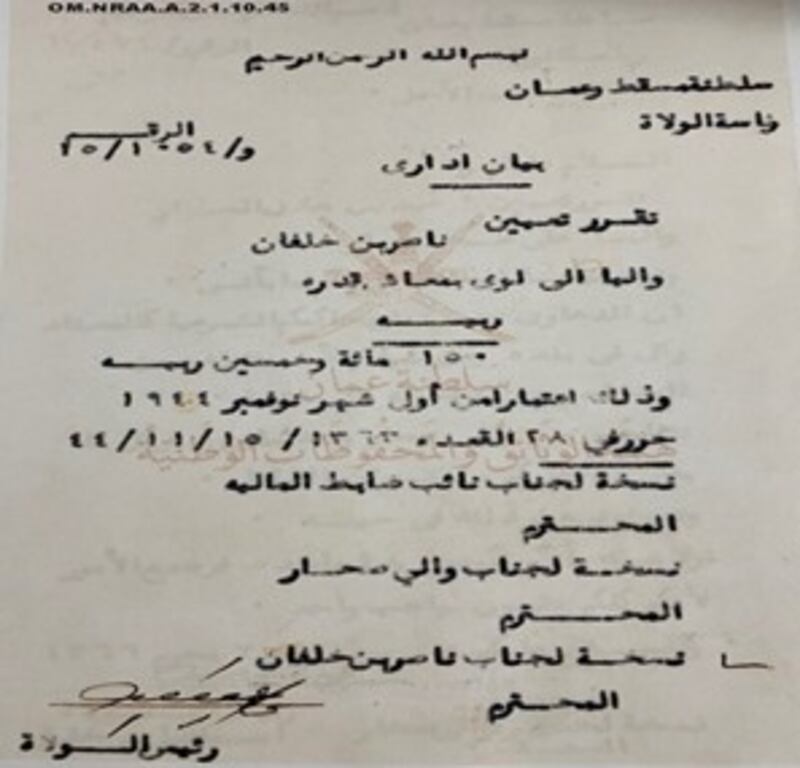 OM.NRAA.A.2.1.10.45
بسم الله الرحمن الرحيم
سلطنة مسقط وعمان
رئاسة الولاة
الرقم
و/١٠٥٤/١٥
بيان ادارى
تقرر تعيين
ناصر بن خلفان
واليا الى لوى بمعاش قدره
ربيه
١٥٠ مائة وخمسين ربيه
وذلك اعتبارا من أول شهر نوفمبر ١٩٤٤
حرر في ٢٨ القعده ١٣٦٣ / ٤٤/١١/١٥
نسخة لجناب نائب ضابط الماليه
المحترم
نسخة لجناب والي صحار
المحترم
نسخة لجناب ناصر بن خلفان
المحترم
رئيس الولاة
سلطنة عمان
هيئة الوثائق والمحفوظات الوطنية